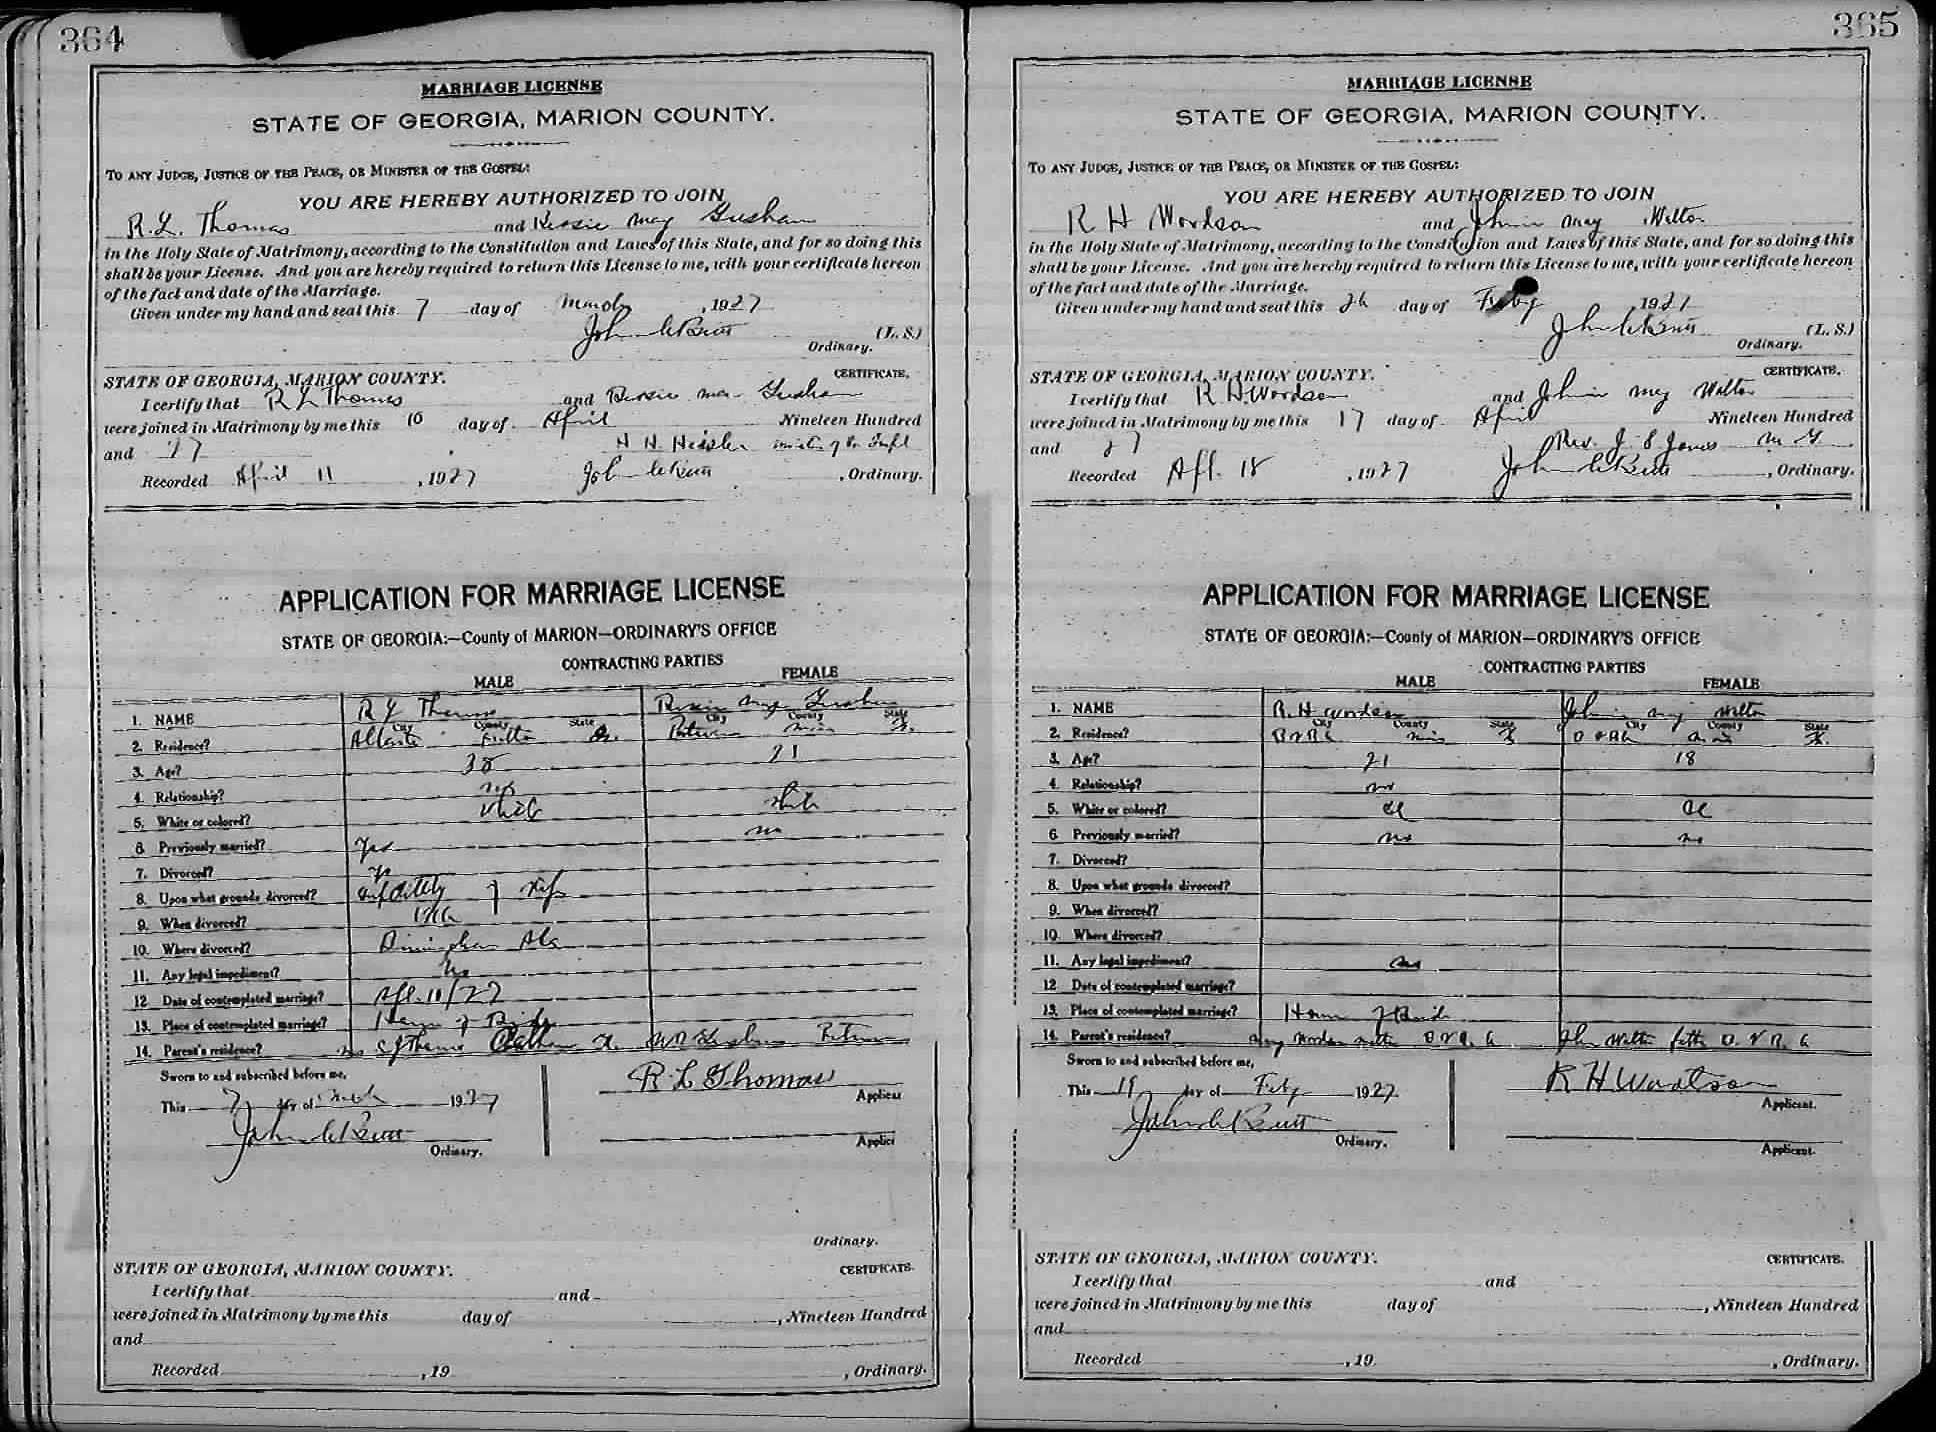 364
MARRIAGE LICENSE
STATE OF GEORGIA, MARION COUNTY.
TO ANY JUDGE, JUSTICE OF THE PEACE, OR MINISTER OF THE GOSPEL:
YOU ARE HEREBY AUTHORIZED TO JOIN
R. L. Thomas and Bessie May
in the Holy State of Matrimony, according to the Constitution and Laws of this State, and for so doing this
shall be your License. And you are hereby required to return this License to me, with your certificate hereon
of the fact and date of the Marriage.
Given under my hand and seal this 7 day of March, 1927
John C Butt (L. S.)
Ordinary.
STATE OF GEORGIA, MARION COUNTY. CERTIFICATE.
I certify that R L Thomas and Bessie May
were joined in Matrimony by me this 10 day of April Nineteen Hundred
and 27
Recorded April 11, 1927 John C Butt, Ordinary.
APPLICATION FOR MARRIAGE LICENSE
STATE OF GEORGIA:—County of MARION—ORDINARY'S OFFICE
CONTRACTING PARTIES
MALE FEMALE
1. NAME R L Thomas Bessie May
City County State City County State
2. Residence? Atlanta Fulton Ga.
3. Age? 38 21
4. Relationship? no
5. White or colored? White White
6. Previously married? Yes no
7. Divorced? Yes
8. Upon what grounds divorced? Infidelity of wife
9. When divorced?
10. Where divorced? Birmingham Ala
11. Any legal impediment? No
12. Date of contemplated marriage? Apl. 10/27
13. Place of contemplated marriage? Home of Bride
14. Parent's residence?
Sworn to and subscribed before me,
This 7 day of Mch 1927
John C Butt
Ordinary.
R. L Thomas
Applicant
Applicant
Ordinary.
STATE OF GEORGIA, MARION COUNTY. CERTIFICATE.
I certify that and
were joined in Matrimony by me this day of , Nineteen Hundred
and
Recorded , 19 , Ordinary.
365
MARRIAGE LICENSE
STATE OF GEORGIA, MARION COUNTY.
TO ANY JUDGE, JUSTICE OF THE PEACE, OR MINISTER OF THE GOSPEL:
YOU ARE HEREBY AUTHORIZED TO JOIN
R H Woodson and Johnie May Wilton
in the Holy State of Matrimony, according to the Constitution and Laws of this State, and for so doing this
shall be your License. And you are hereby required to return this License to me, with your certificate hereon
of the fact and date of the Marriage.
Given under my hand and seal this 26 day of Feby 1927
John C Butt (L. S.)
Ordinary.
STATE OF GEORGIA, MARION COUNTY. CERTIFICATE.
I certify that R H Woodson and Johnie May Wilton
were joined in Matrimony by me this 17 day of April Nineteen Hundred
and 27 Rev. J. S Jones M. G.
Recorded Apl. 18, 1927 John C Butt, Ordinary.
APPLICATION FOR MARRIAGE LICENSE
STATE OF GEORGIA:—County of MARION—ORDINARY'S OFFICE
CONTRACTING PARTIES
MALE FEMALE
1. NAME R. H Woodson Johnie May Wilton
City County State City County State
2. Residence?
3. Age? 21 18
4. Relationship? no
5. White or colored? Col Col
6. Previously married? no no
7. Divorced?
8. Upon what grounds divorced?
9. When divorced?
10. Where divorced?
11. Any legal impediment? no
12. Date of contemplated marriage?
13. Place of contemplated marriage? Home of Bride
14. Parent's residence? John Wilton father
Sworn to and subscribed before me,
This 19 day of Feby 1927
John C Butt
Ordinary.
R H Woodson
Applicant.
Applicant.
STATE OF GEORGIA, MARION COUNTY. CERTIFICATE.
I certify that and
were joined in Matrimony by me this day of , Nineteen Hundred
and
Recorded , 19 , Ordinary.